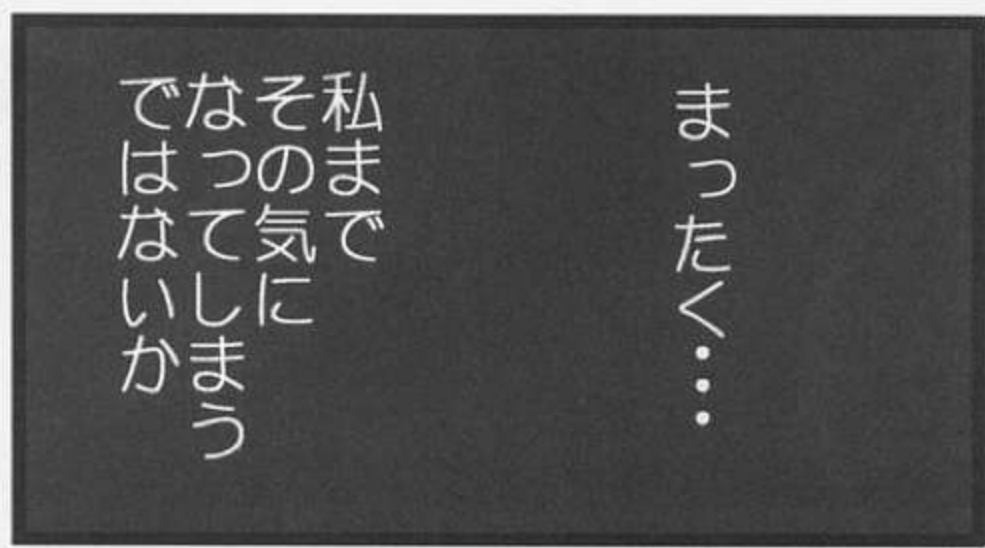 まったく…
私まで
その気に
なってしまう
ではないか